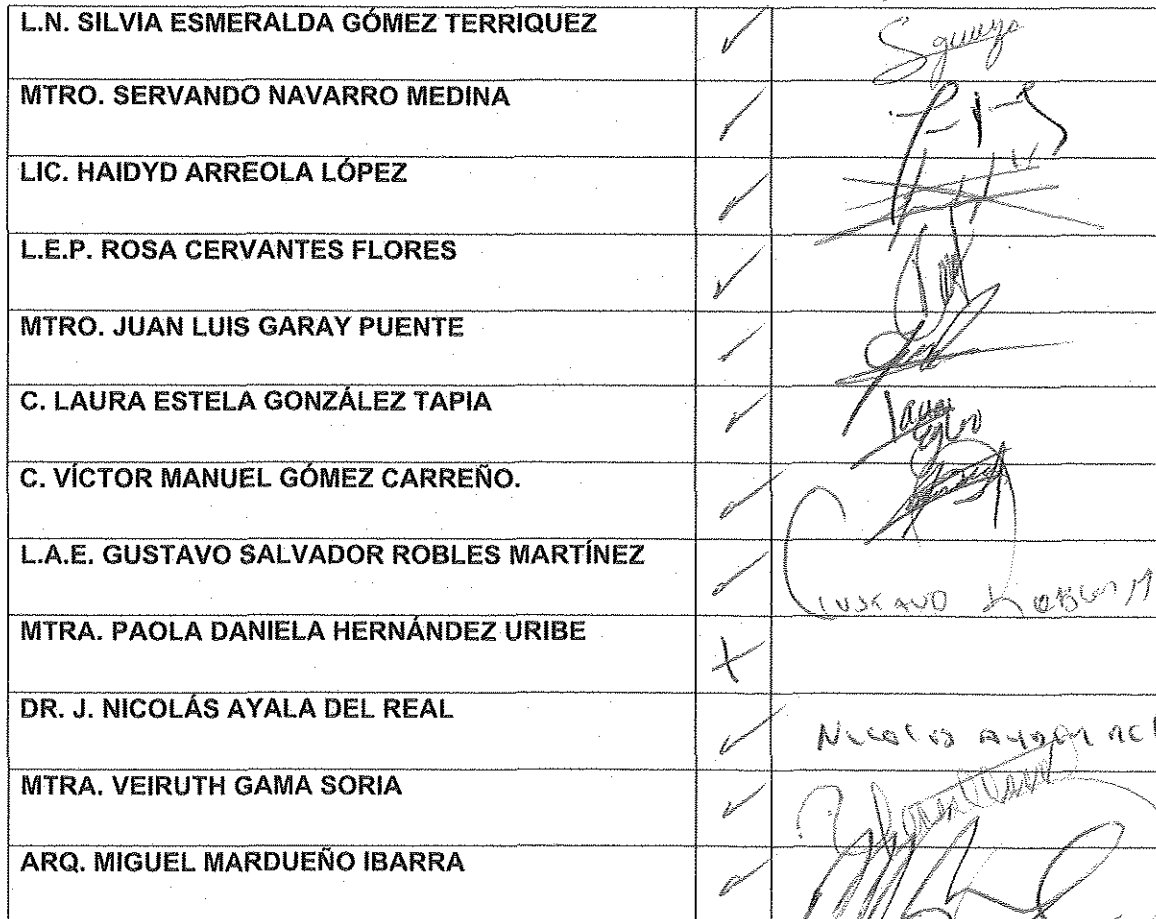 L.N. SILVIA ESMERALDA GÓMEZ TERRIQUEZ ✓
MTRO. SERVANDO NAVARRO MEDINA ✓
LIC. HAIDYD ARREOLA LÓPEZ ✓
L.E.P. ROSA CERVANTES FLORES ✓
MTRO. JUAN LUIS GARAY PUENTE ✓
C. LAURA ESTELA GONZÁLEZ TAPIA ✓
C. VÍCTOR MANUEL GÓMEZ CARREÑO. ✓
L.A.E. GUSTAVO SALVADOR ROBLES MARTÍNEZ ✓ GUSTAVO ROBLES M
MTRA. PAOLA DANIELA HERNÁNDEZ URIBE +
DR. J. NICOLÁS AYALA DEL REAL ✓ NICOLAS AYALA
MTRA. VEIRUTH GAMA SORIA ✓
ARQ. MIGUEL MARDUEÑO IBARRA ✓